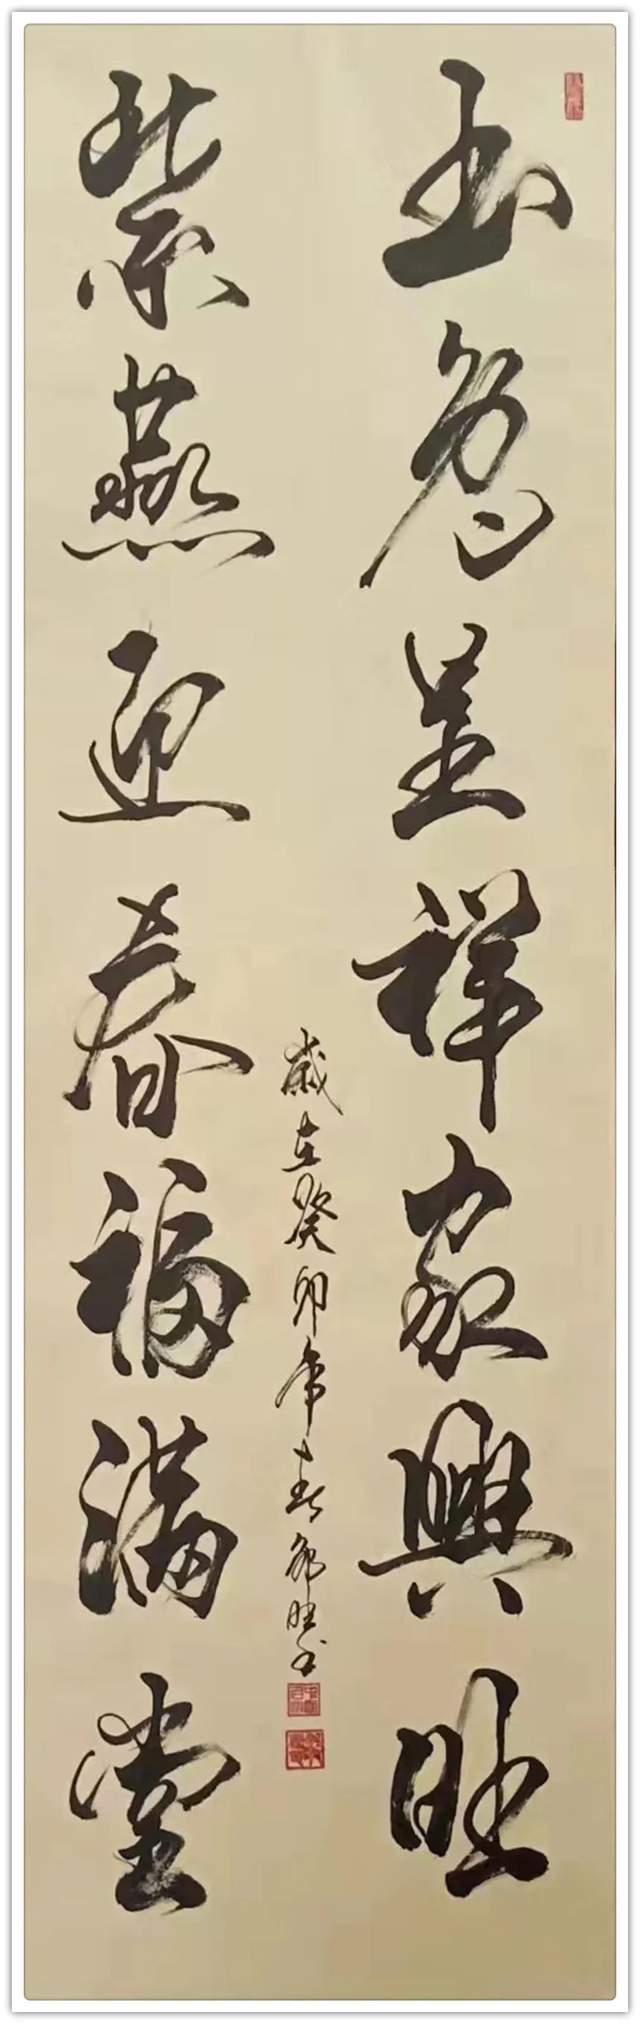 玉兔呈祥家興旺
紫燕迎春福满堂
歲在癸卯年春